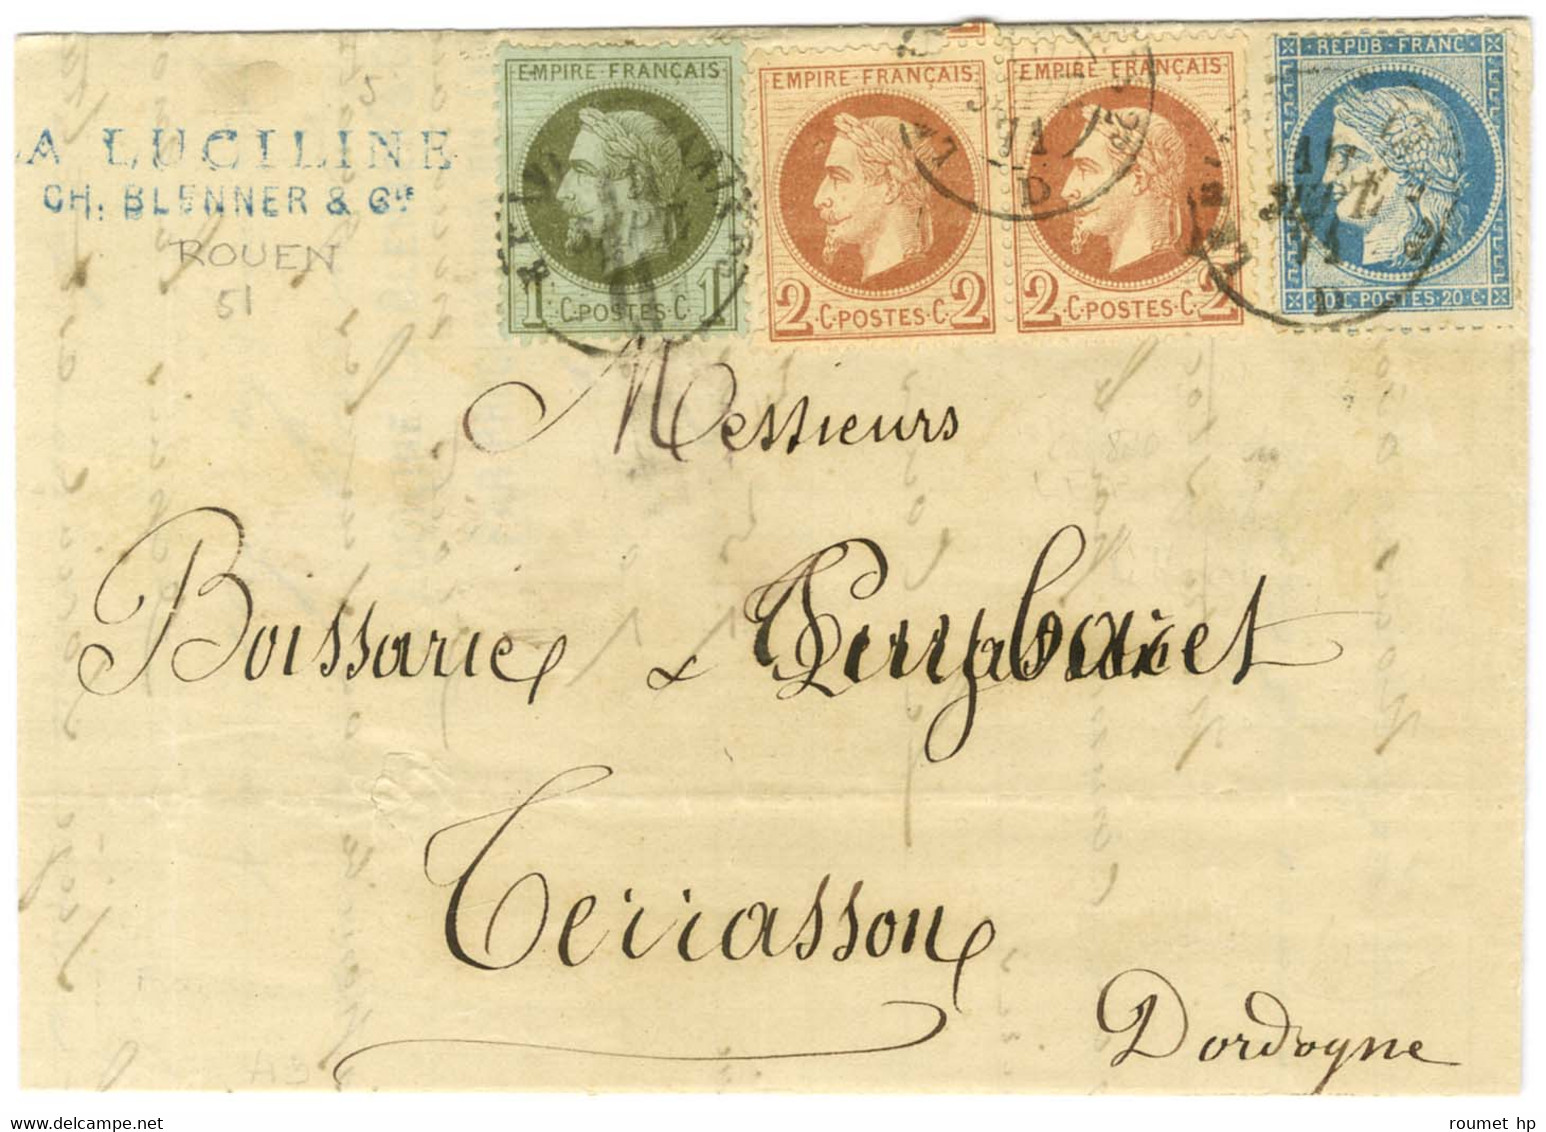 LA LUCILINE
CH. BLENNER & Cie
ROUEN
51
EMPIRE FRANÇAIS
1 C. POSTES C. 1
EMPIRE FRANÇAIS
2 C. POSTES C. 2
EMPIRE FRANÇAIS
2 C. POSTES C. 2
REPUB. FRANC.
20 C. POSTES. 20 C.
SEPT.
71
D
16
SEPT.
71
D
Messieurs
Boissarie &
Terrasson
Dordogne
roumet hp